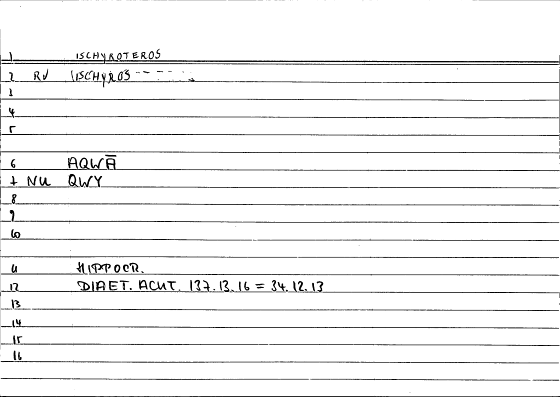 1 ISCHYROTEROS
2 RV ISCHYROS
3
4
5
6 AQWĀ
7 NU QWY
8
9
10
11 HIPPOCR.
12 DIAET. ACUT. 137.13.16 = 34.12.13
13
14
15
16